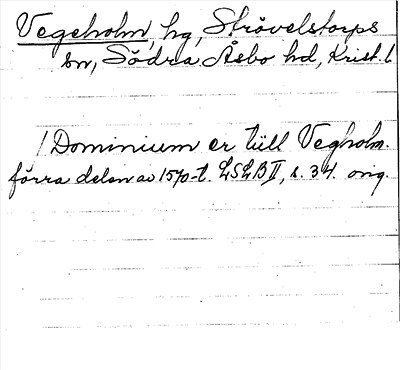 Vegeholm, hg, Strövelstorps
sn, Södra Åsbo hd, Krist. l.
/ Dominium er tiill Vegholm.
förra delen av 1570-t. LSLB II, s. 34. orig.